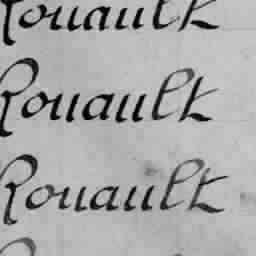 Rouault
Rouault
Rouault